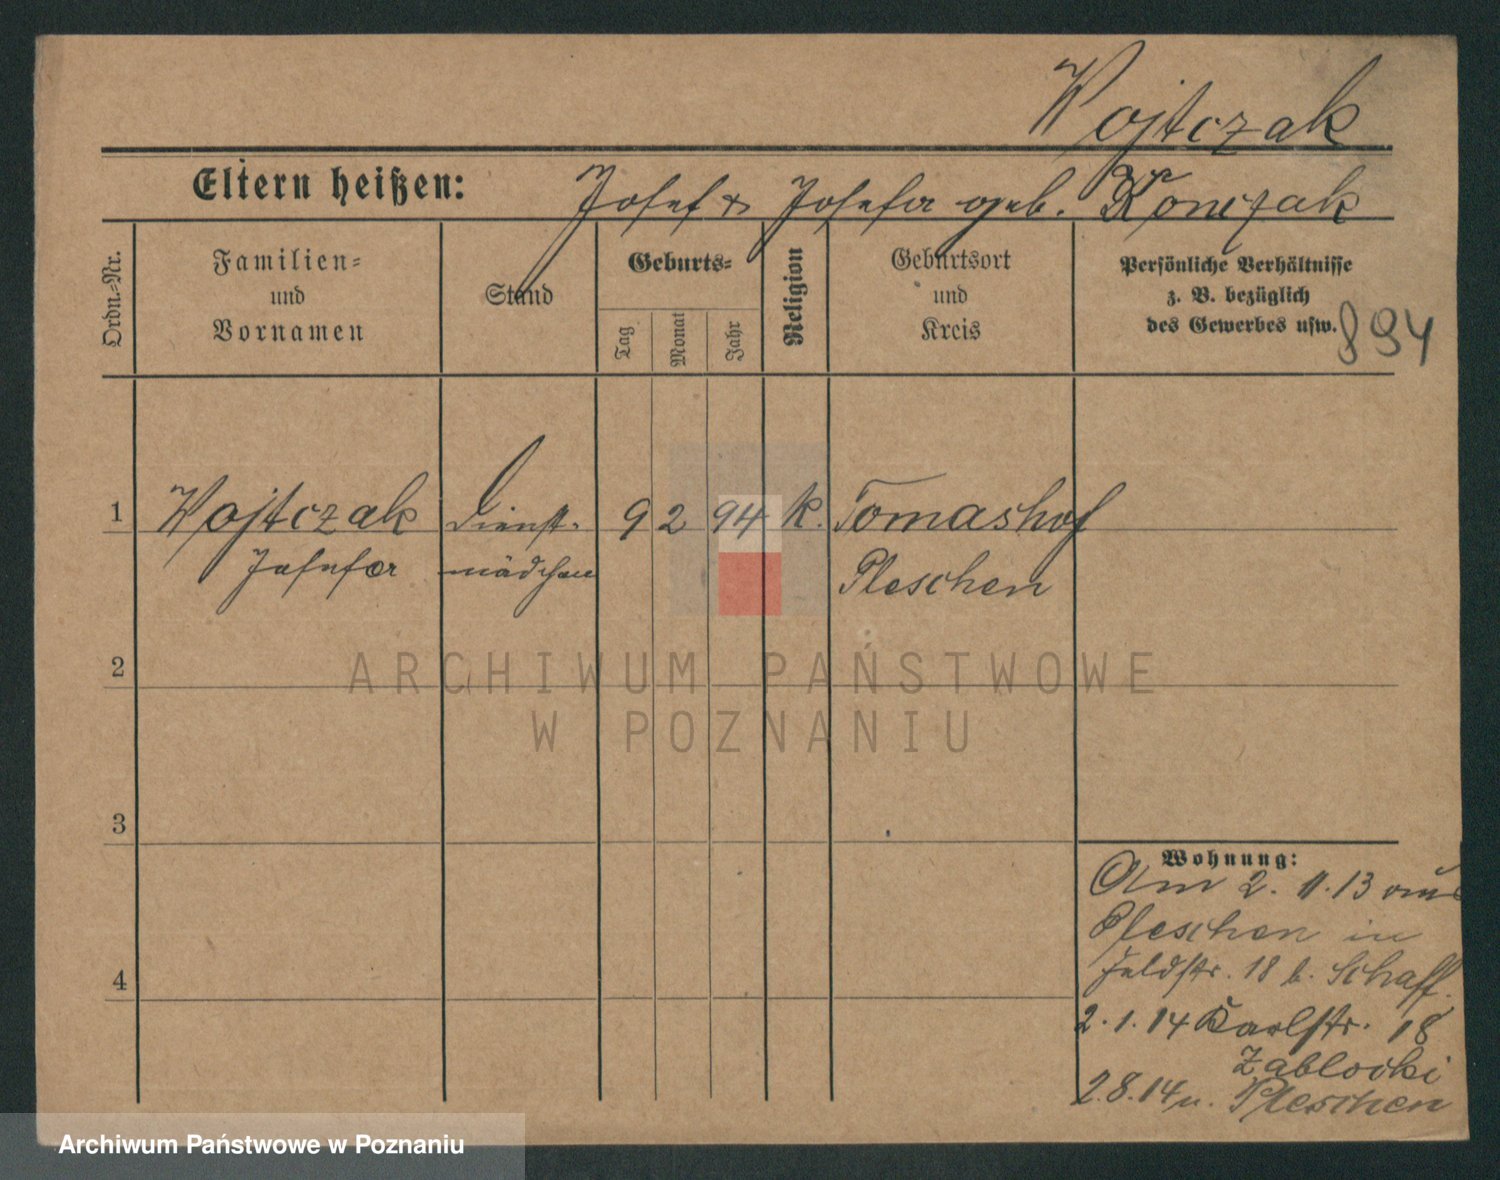 Wojtczak
Eltern heißen: Josef & Josefa geb. Konczak
Ordn.-Nr.
Familien-
und
Vornamen
Stand
Geburts-
Tag
Monat
Jahr
Religion
Geburtsort
und
Kreis
Persönliche Verhältnisse
z. B. bezüglich
des Gewerbes usw.
894
1 Wojtczak Dienst- 9 2 94 k. Tomashof
Josefa mädchen Pleschen
2
3
4
Wohnung:
Am 2. 11. 13 aus
Pleschen in
Feldstr. 18 b. Schaff.
2. 1. 14 Karlstr. 18
Zablocki
2.8.14 n. Pleschen
ARCHIWUM PAŃSTWOWE
W POZNANIU
Archiwum Państwowe w Poznaniu